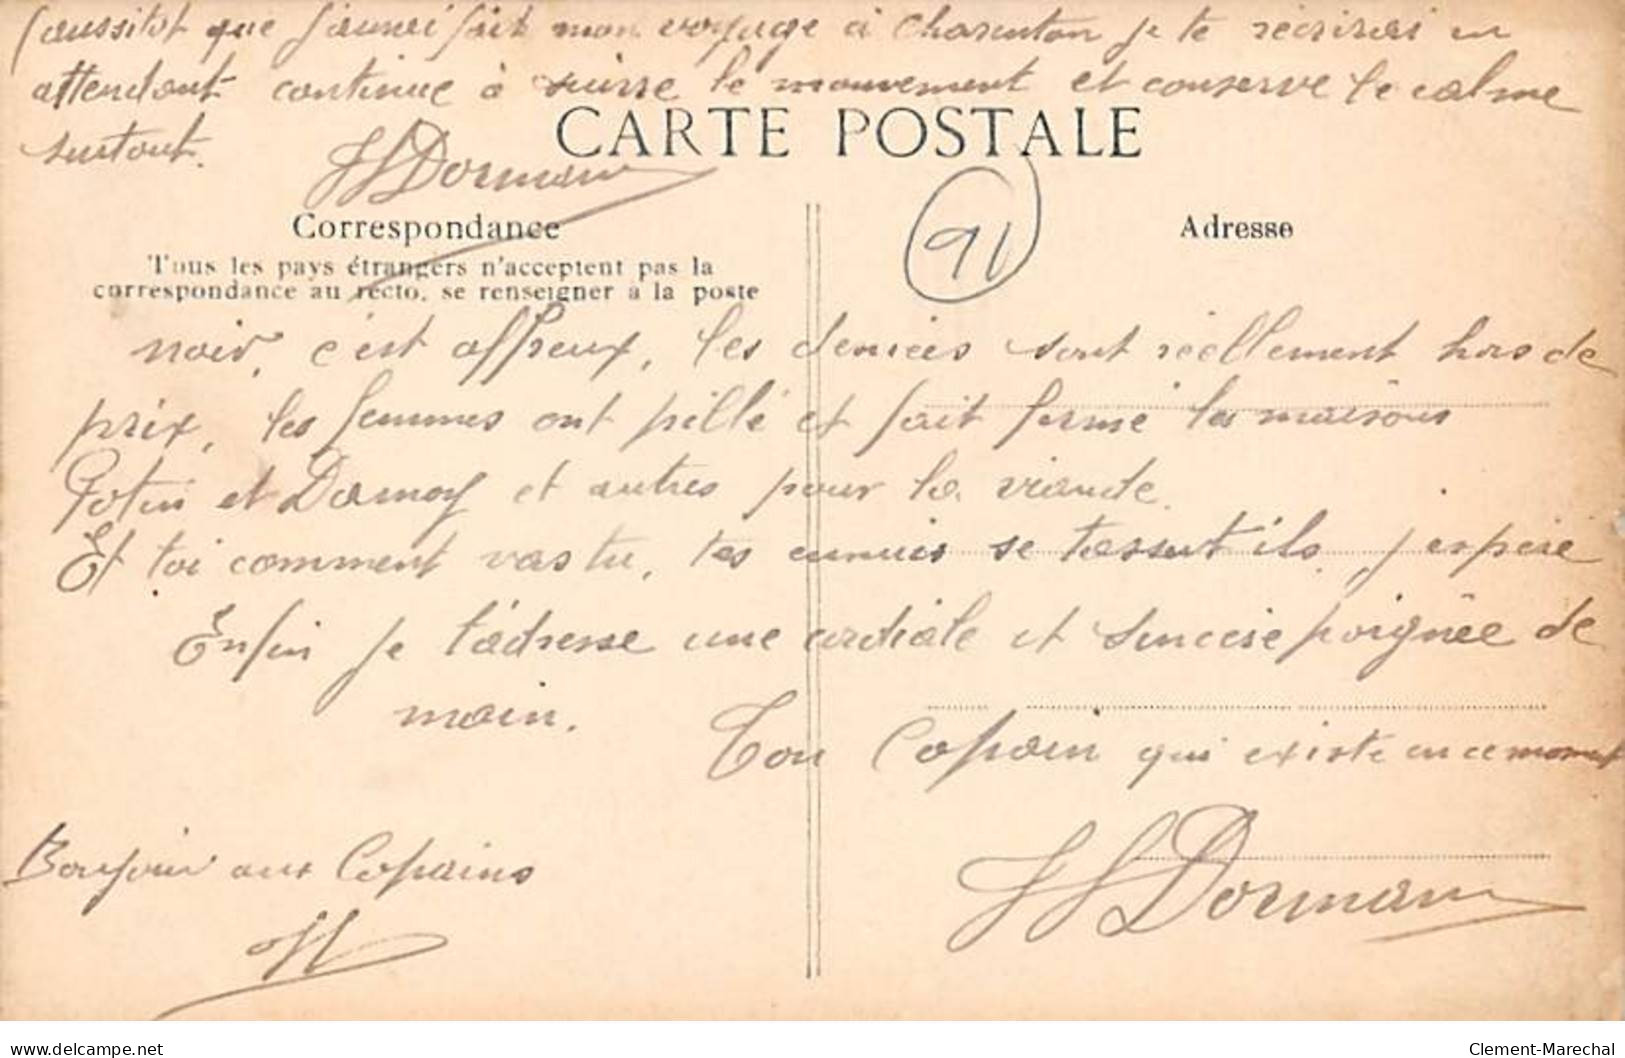 aussitot que j'aurai fait mon voyage à Charenton je te récrirai en
attendant continue à suivre le mouvement et conserve le calme
surtout.
H Dormann
CARTE POSTALE
91
Correspondance
Adresse
Tous les pays étrangers n'acceptent pas la
correspondance au recto, se renseigner a la poste
noir, c'est affreux, les denrées sont réellement hors de
prix, les femmes ont pillé et fait fermé les maisons
Potin et Damoy et autres pour la viande.
Et toi comment vas tu, tes ennuis se tassent ils, j'espère
Enfin je t'adresse une cordiale et sincère poignée de
main.
Ton Copain qui existe en ce moment
H Dormann
Bonjour aux Copains
H
delcampe.net
Clement-Marechal